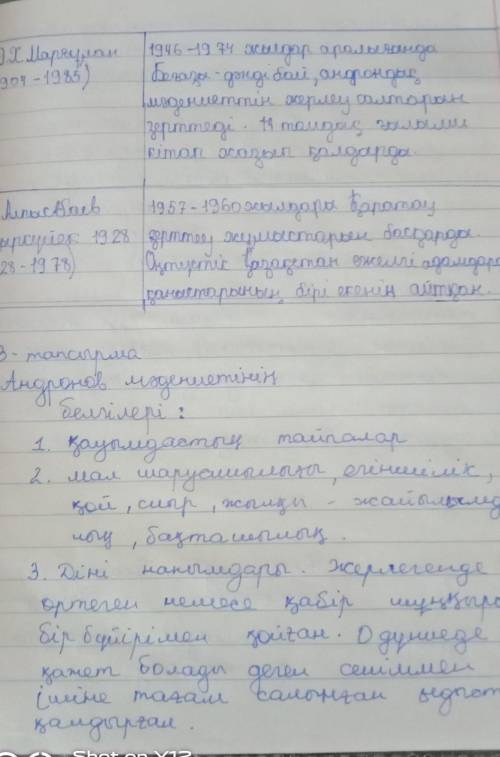 Ә.Х.Марғұлан
1946-1974 жылдар аралығында
904-1985)
Беғазы-дәндібай, андрондық
мәдениеттің жерлеу салтарын
зерттеді. 19 томдық ғылыми
кітап жазып қалдарды.
Алпысбаев
1957-1960 жылдары Қаратау
1928
зерттеу жұмыстарын басқарды.
28-1978)
Оңтүстік Қазақстан ежелгі адамдард
қоныстарының бірі екенің айтқан.
3-тапсырма
Андронов мәдениетінің
белгілері:
1. қауымдастың тайпалар
2. мал шаруашылығы, егіншілік,
қой, сиыр, жылқы - жайылымд
лық, бақташылық.
3. Діні нанымдары. Жерлегенде
өртеген немесе қабір шұңқыр
бір бүйірімен қойған. О дүниеде
қажет болады деген сеніммен
ішіне тағам салынған ыдыст
қалдырған.
Shot on Y12